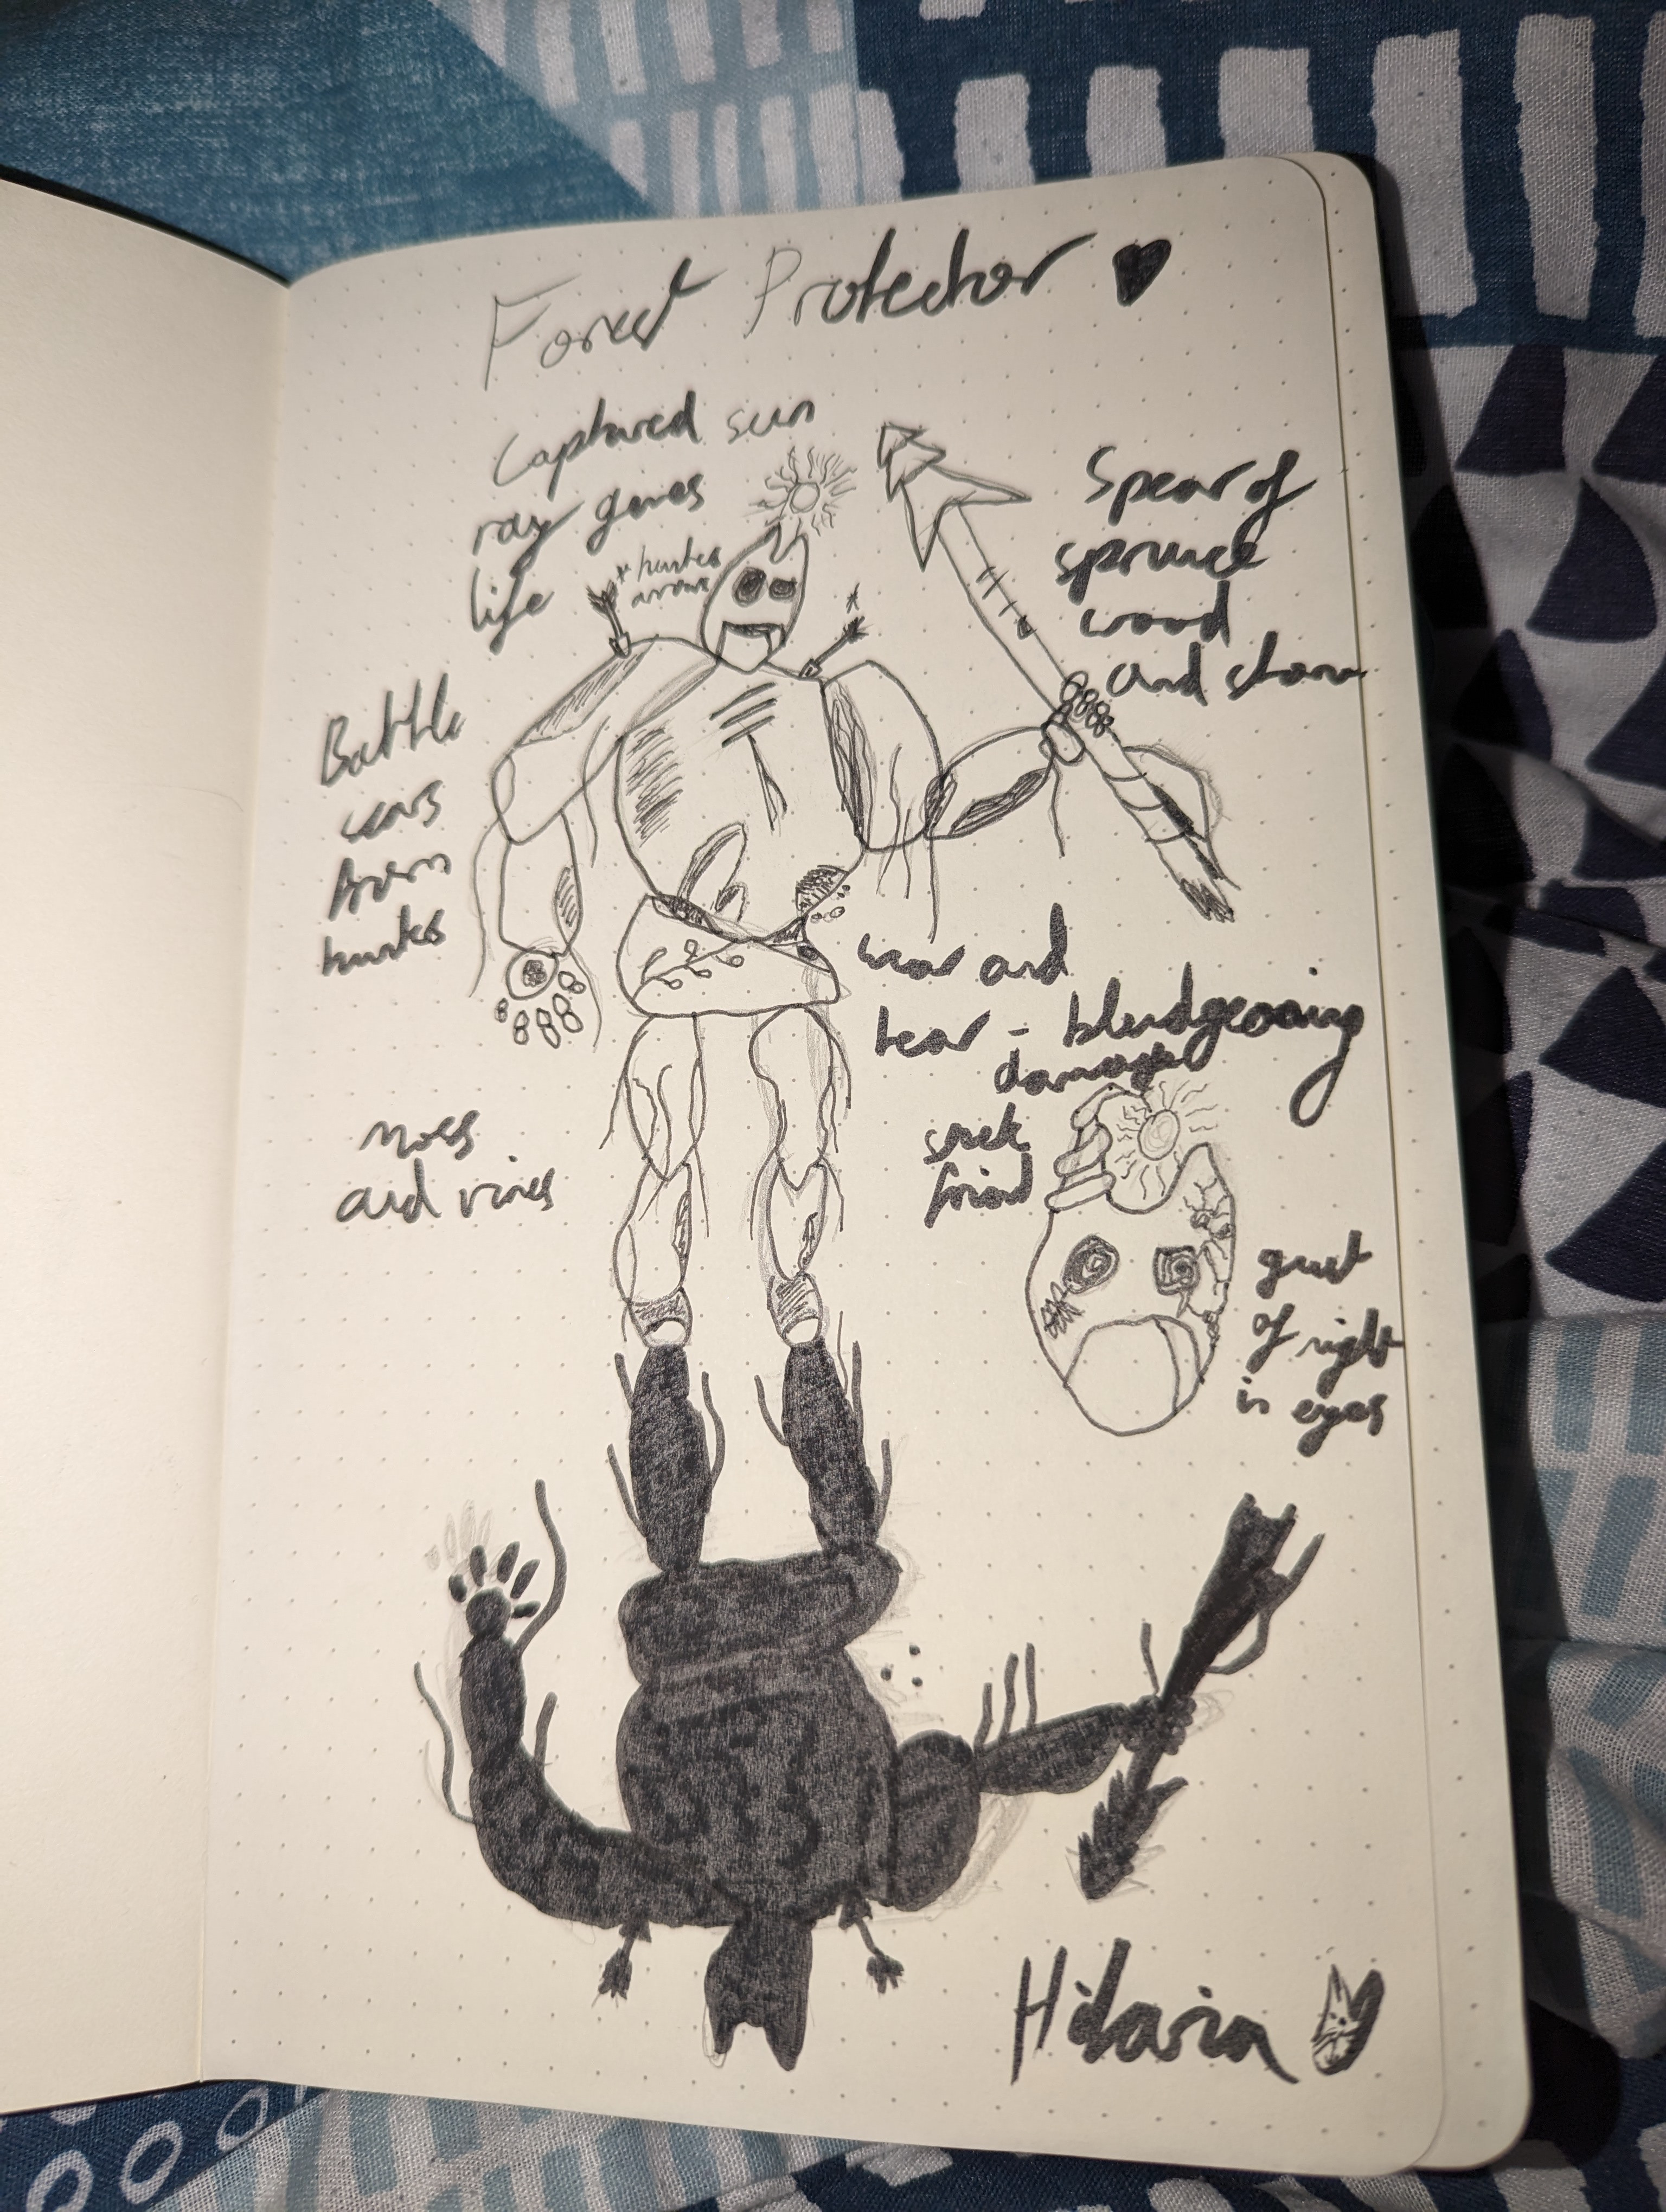 Forest Protector
Captured sun
ray gives
life
* hunter
arrows
Spear of
spruce
wood
and stone
Battle
scars
from
hunters
wear and
tear - bludgeoning
damage
moss
and vines
friend
of right
in eyes
Hilaria